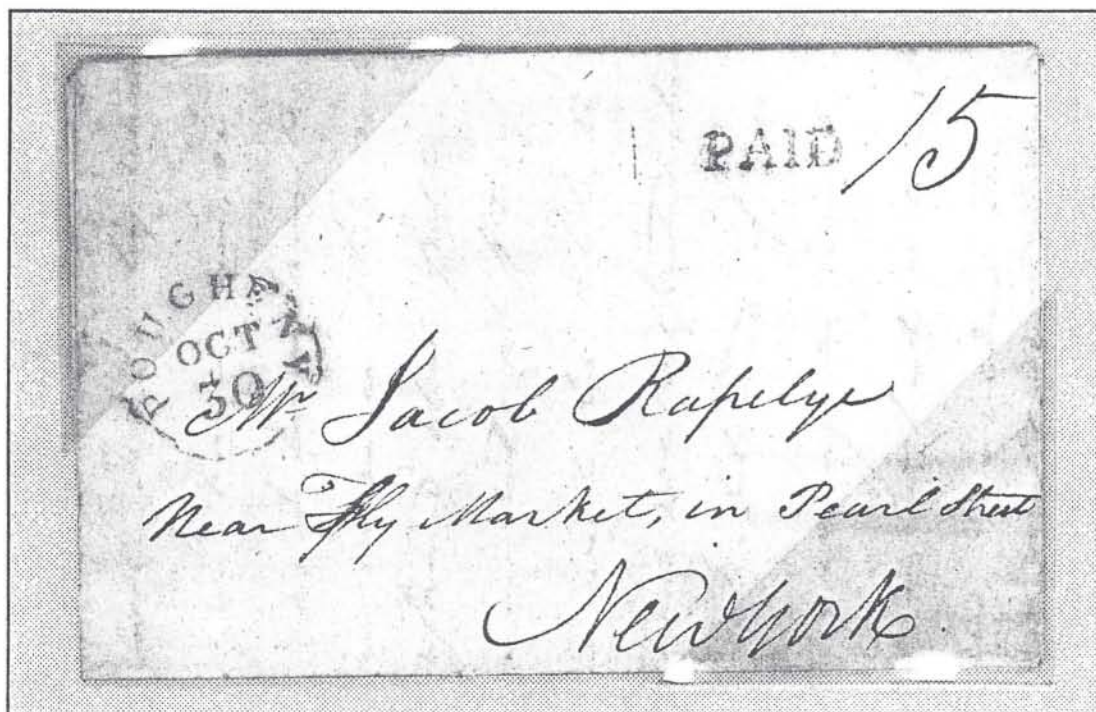 PAID 15
POUGHKEE
OCT
30
Mr Jacob Rapelye
Near Fly Market, in Pearl Street
New York